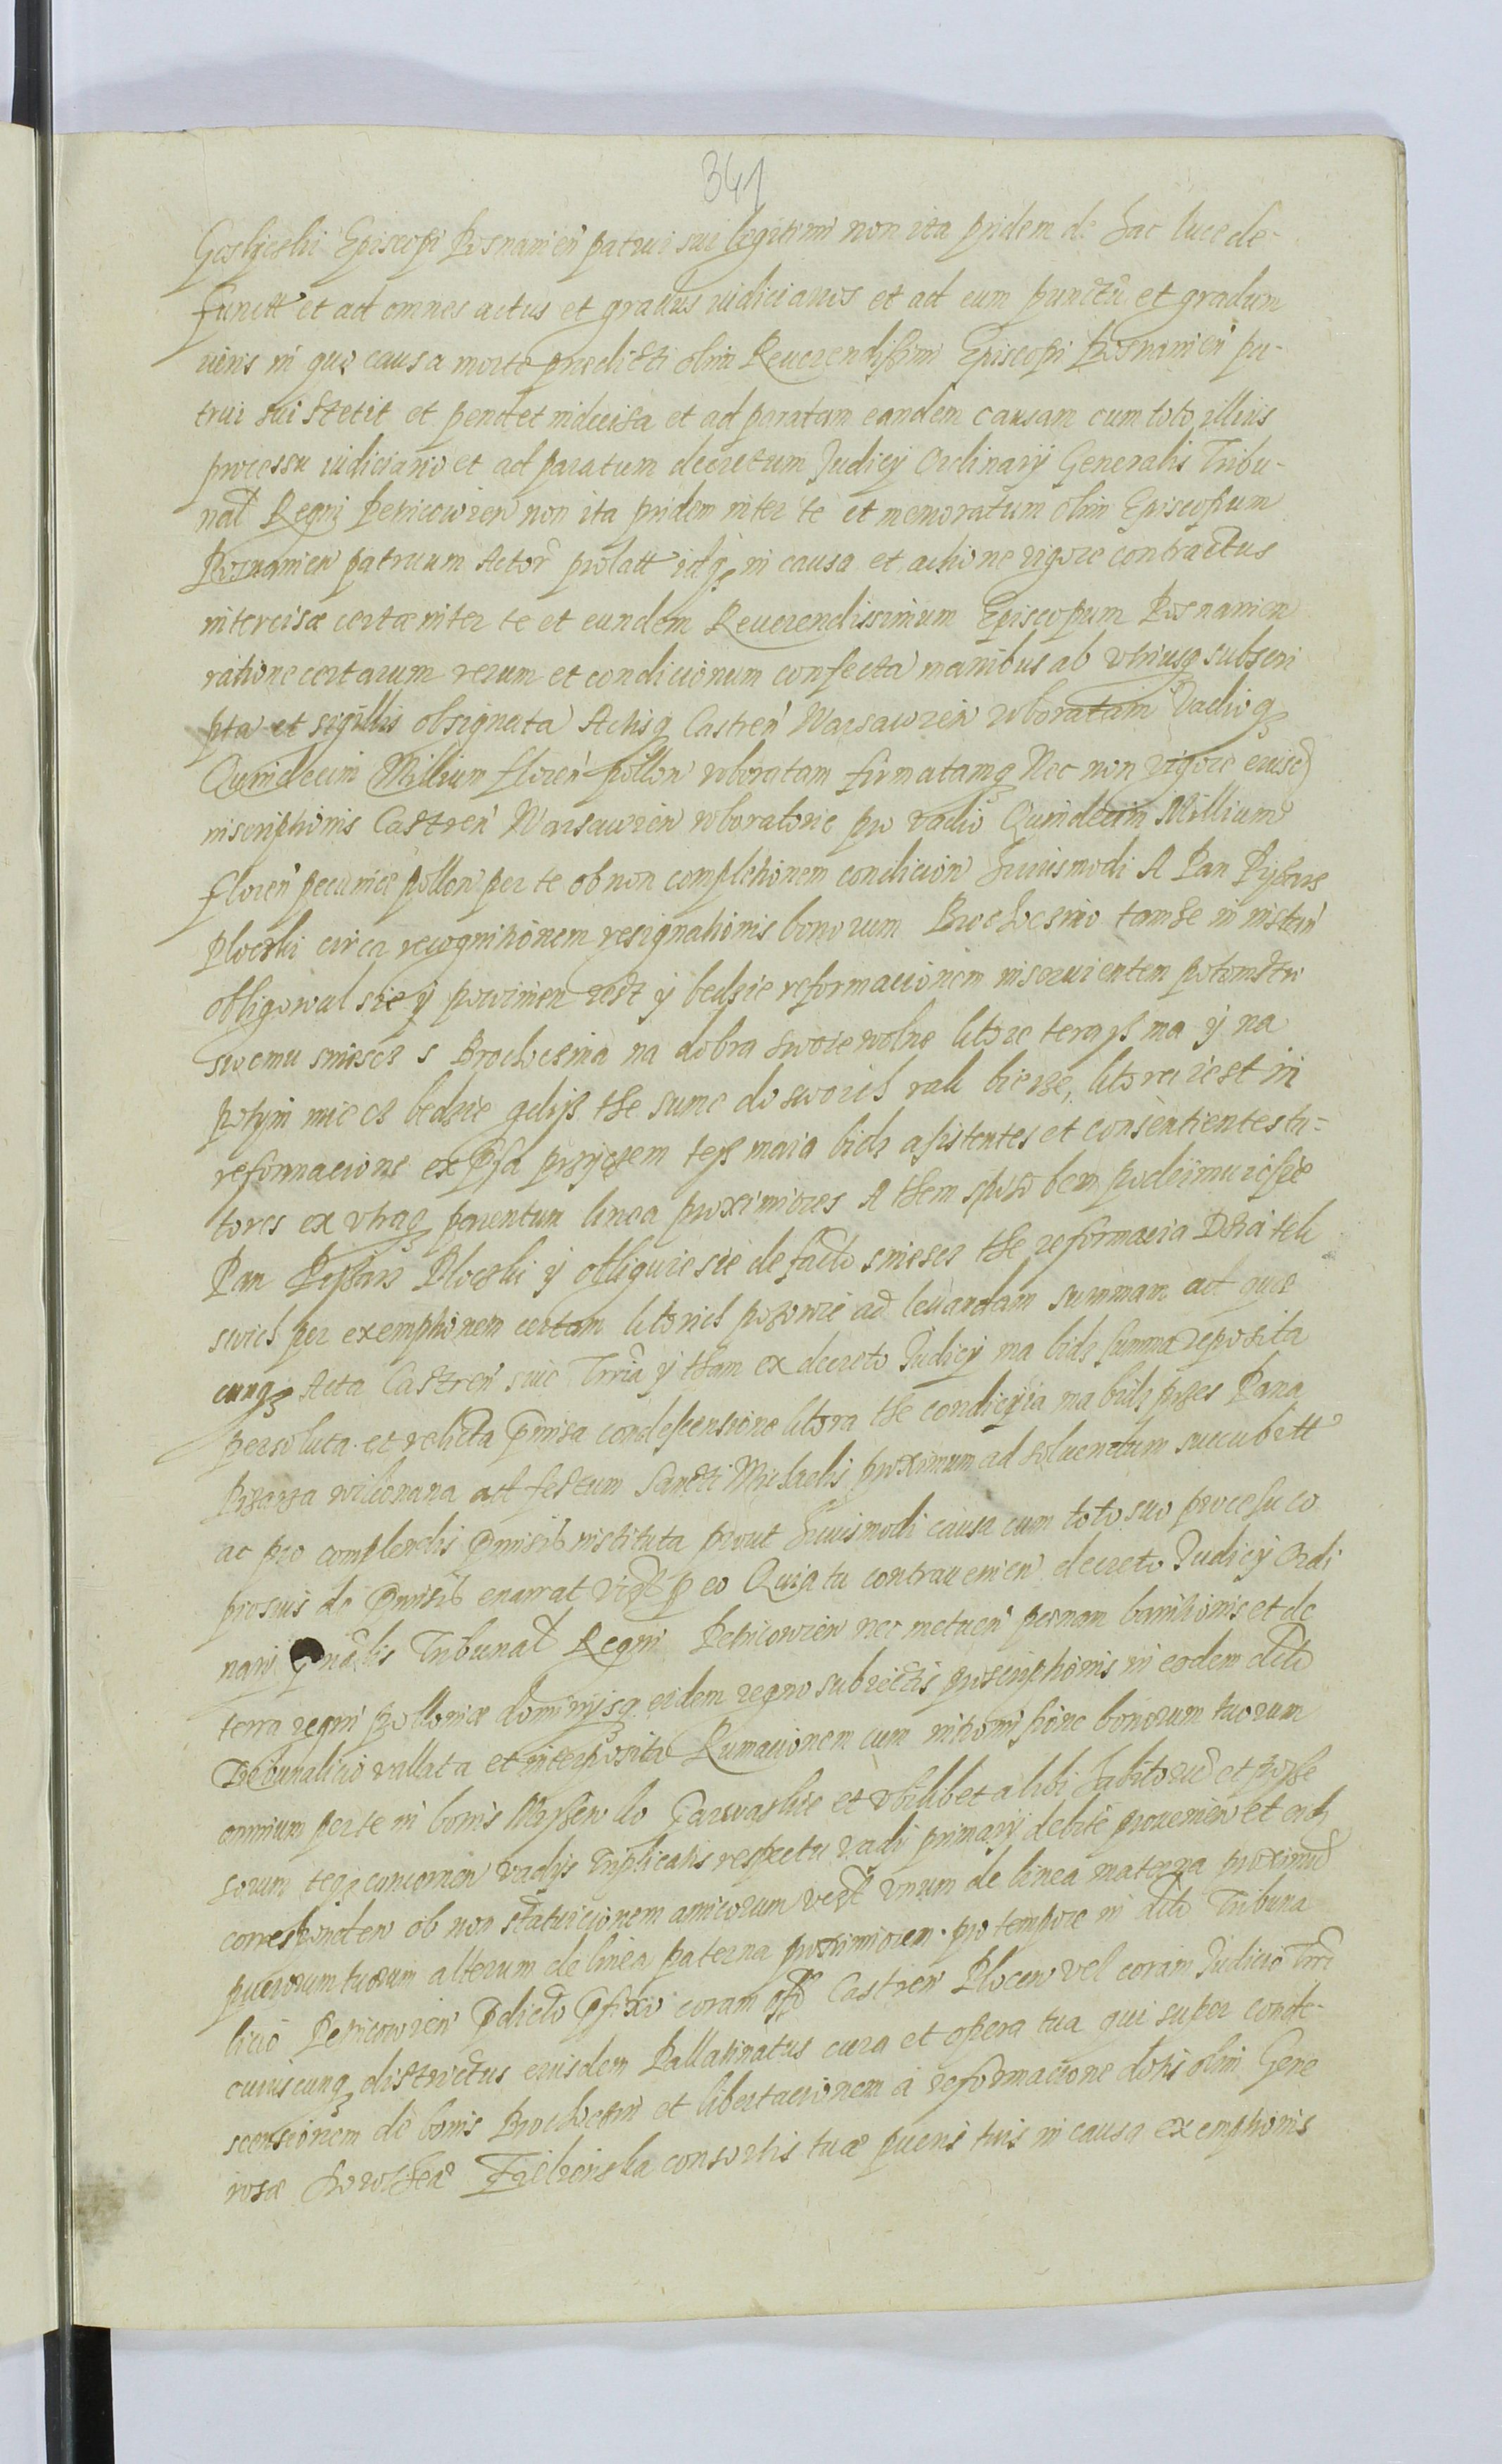 341
Goslicski Episcopi Posnanien patrui sui legitimi non ita pridem de hac luce de-
functi et ad omnes actus et gradus iudiciarios et ad eum punctu et gradum
iuris in quo causa morte prædicti olim Reuerendissimi Episcopi Posnanien pa-
trui sui stetit et pendet indecisa et ad paratam eandem causam cum toto illius
processu iudiciario et ad paratum decretum Judicij Ordinarij Generalis Tribu-
nal Regni Petricowien non ita pridem inter te et memoratum olim Episcopum
Posnanien patruum Actor prolatt idq in causa et actione vigore contractus
intercisæ certæ inter te et eundem Reuerendissimum Episcopum Posnanien
ratione certarum rerum et condicionum confecta manibus ab vtriusq subscri
pta et sigillis obsignata Actisq Castren Warsawien roboratam Vadioq
Quindecim Millium floren pollon roboratam firmatamq Nec non vigore eiusd
inscriptionis Castren Warsawien roboratorie pro vadio Quindecim Millium
floren pecuniæ pollon per te ob non completionem condicion huiusmodi A Pan Pissarz
Ploczki circa recognitionem resignationis bonorum Brochocino tamze in instan
obligowal sie y powinien iest y bedzie reformacionem inseruientem potomstwu
swemu sniescz s Brochocina na dobra swoie wolne ktore teraz ma y na
potym miecz bedzie gdysz the sume do swoich rak bierze, ktora iest in
reformacione expssa przyczem tesz maia bidz assistentes et consentientes tu-
tores ex vtraq parentum linea proximiores A them sposobem podeimuie sie
Pan Pissarz Ploczki y obliguie sie de facto sniescz the reformacia Dziatek
swich per exemptionem certam ktorich pozowie ad leuandam summam ad quæ
cunq Acta Castren siue Trria y tham ex decreto Judicij ma bidz summa reposita
persoluta et relicta pmissa condescensione ktora the condicyia ma bidz przes Pana
Pisarza wikonana ad festum Sancti Michaelis proximum ad soluendum succubitt
ac pro complendis pmissis instituta prout huiusmodi causa cum toto suo processu co
piosius de pmissis enarrat vidzt p eo Quia tu contrauenien decreto Judicij Ordi
narij gnalis Tribunal Regni Petricowien nec metuen pœnam banitionis et de
terra regni polloniæ dominijsq eidem regno subiectis proscriptionis in eodem dcto
Tribunalicio vallata et interposita Rumacionem cum intromissione bonorum tuorum
omnium per te in bonis et vbilibet alibi habitoru et posse
sorum teq concernen vadijs triplicatis respectu vadi primarij debite prouenien et eidz
corresponden ob non statuicionem amicorum vidzt vnum de linea materna proximu
puerorum tuorum alterum de linea paterna proximiorem pro tempore in dcto Tribuna
licio Petricowien pdicto pfixo coram offo Castren Plocen vel coram Judicio Trri
cuiuscunq districtus eiusdem Pallatinatus cura et opera tua qui super conde-
scensionem de bonis Brochocin et libertacionem a reformacione dotis olim Gene
rosæ Dorotheæ consortis tuæ pueris tuis in causa exemptionis